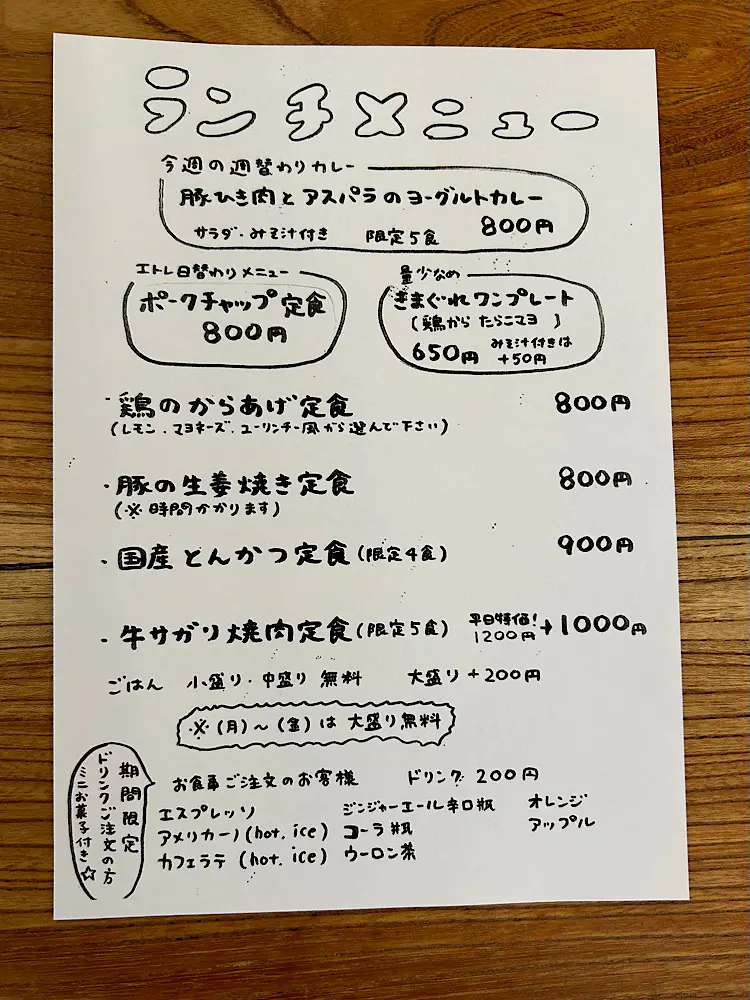 ランチメニュー
今週の週替わりカレー
豚ひき肉とアスパラのヨーグルトカレー
サラダ・みそ汁付き 限定5食 800円
エトレ日替わりメニュー
ポークチャップ定食
800円
量少なめ
きまぐれワンプレート
(鶏から たらこマヨ )
650円 みそ汁付きは
+50円
・鶏のからあげ定食 800円
(レモン.マヨネーズ.ユーリンチー風から選んで下さい)
・豚の生姜焼き定食 800円
(※時間かかります)
・国産とんかつ定食(限定4食) 900円
・牛サガリ焼肉定食(限定5食) 平日特価!
1200円→1000円
ごはん 小盛り・中盛り 無料 大盛り+200円
※(月)~(金)は大盛り無料
期間限定
ドリンクご注文の方
ミニお菓子付き☆
お食事ご注文のお客様 ドリンク 200円
エスプレッソ ジンジャーエール辛口瓶 オレンジ
アメリカーノ(hot. ice) コーラ瓶 アップル
カフェラテ (hot. ice) ウーロン茶